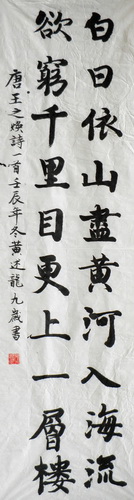 白日依山盡黃河入海流
欲窮千里目更上一層樓
唐王之煥詩一首壬辰年冬黃述龍九歲書